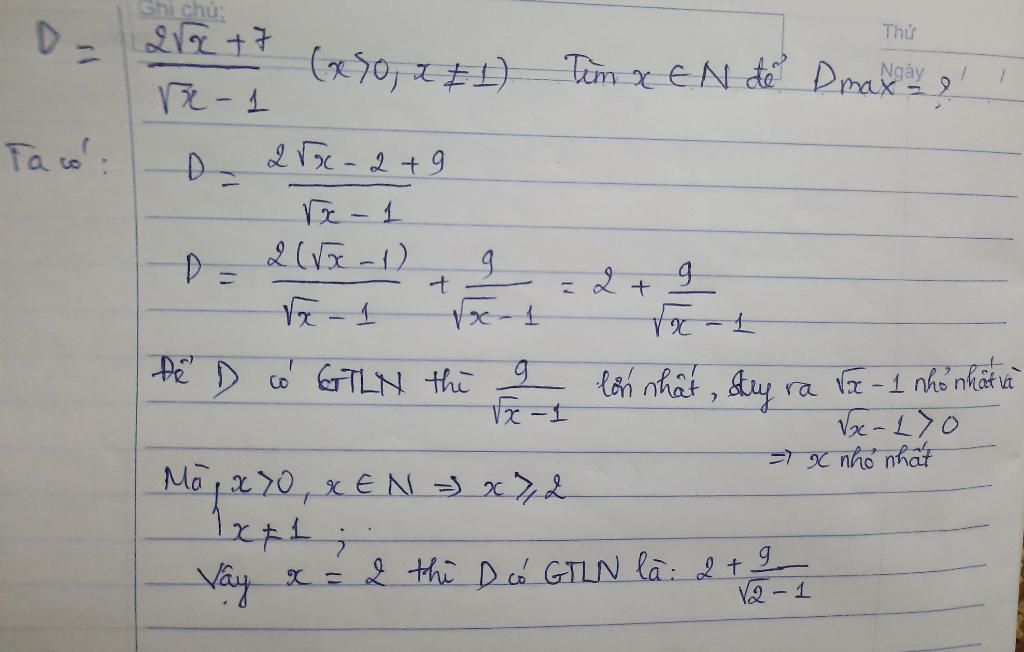 Ghi chú:
Thứ
Ngày / /
D = (2√x + 7)/(√x - 1) (x>0, x ≠ 1) Tìm x ∈ N để Dmax = ?
Ta có: D = (2√x - 2 + 9)/(√x - 1)
D = (2(√x - 1))/(√x - 1) + 9/(√x - 1) = 2 + 9/(√x - 1)
Để D có GTLN thì 9/(√x - 1) lớn nhất, suy ra √x - 1 nhỏ nhất và
√x - 1 > 0
=> x nhỏ nhất
Mà x>0, x ∈ N => x ⩾ 2
x ≠ 1 ;
Vậy x = 2 thì D có GTLN là: 2 + 9/(√2 - 1)